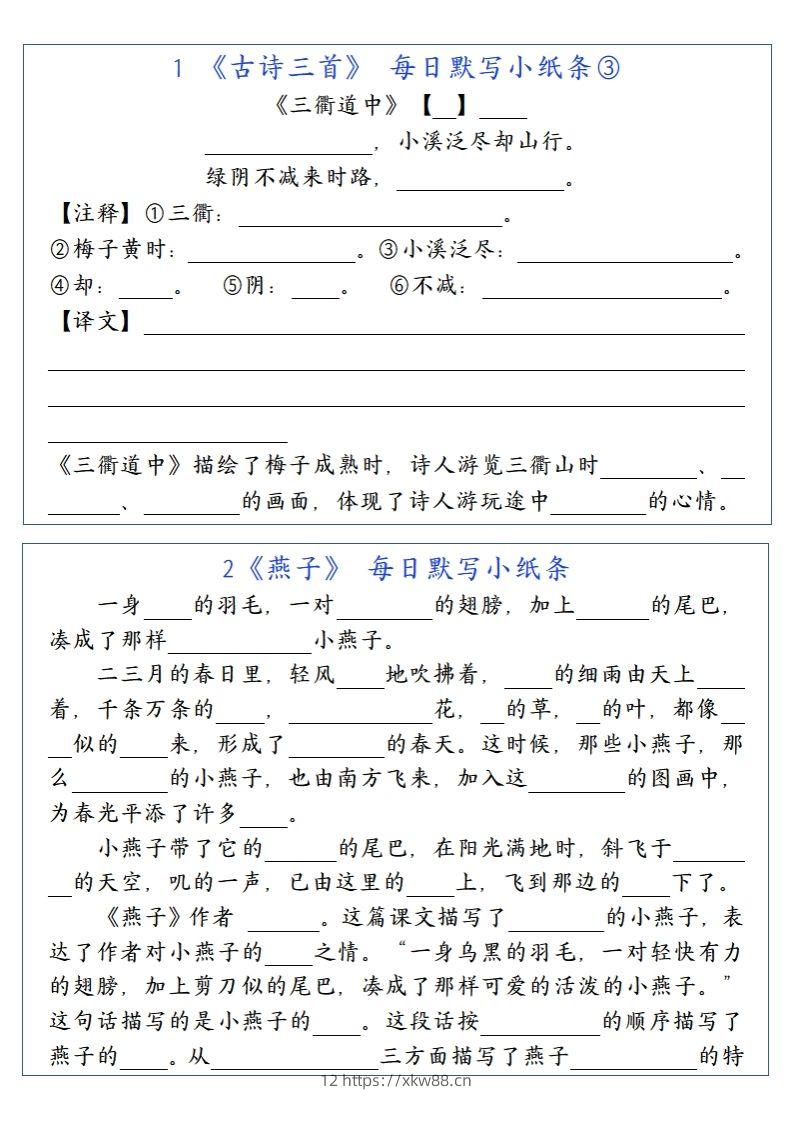 1 《古诗三首》 每日默写小纸条③
《三衢道中》【__】____
______________，小溪泛尽却山行。
绿阴不减来时路，______________。
【注释】①三衢：______________________。
②梅子黄时：______________。③小溪泛尽：__________________。
④却：____。 ⑤阴：____。 ⑥不减：____________________。
【译文】__________________________________________________
__________________________________________________________
__________________________________________________________
____________________
《三衢道中》描绘了梅子成熟时，诗人游览三衢山时________、__
______、________的画面，体现了诗人游玩途中________的心情。
2《燕子》 每日默写小纸条
一身____的羽毛，一对________的翅膀，加上______的尾巴，
凑成了那样____________小燕子。
二三月的春日里，轻风____地吹拂着，____的细雨由天上____
着，千条万条的____，____________花，__的草，__的叶，都像__
__似的____来，形成了________的春天。这时候，那些小燕子，那
么________的小燕子，也由南方飞来，加入这________的图画中，
为春光平添了许多____。
小燕子带了它的______的尾巴，在阳光满地时，斜飞于______
__的天空，叽的一声，已由这里的____上，飞到那边的____下了。
《燕子》作者 ______。这篇课文描写了________的小燕子，表
达了作者对小燕子的____之情。“一身乌黑的羽毛，一对轻快有力
的翅膀，加上剪刀似的尾巴，凑成了那样可爱的活泼的小燕子。”
这句话描写的是小燕子的____。这段话按__________的顺序描写了
燕子的____。从______________三方面描写了燕子__________的特
12 https://xkw88.cn